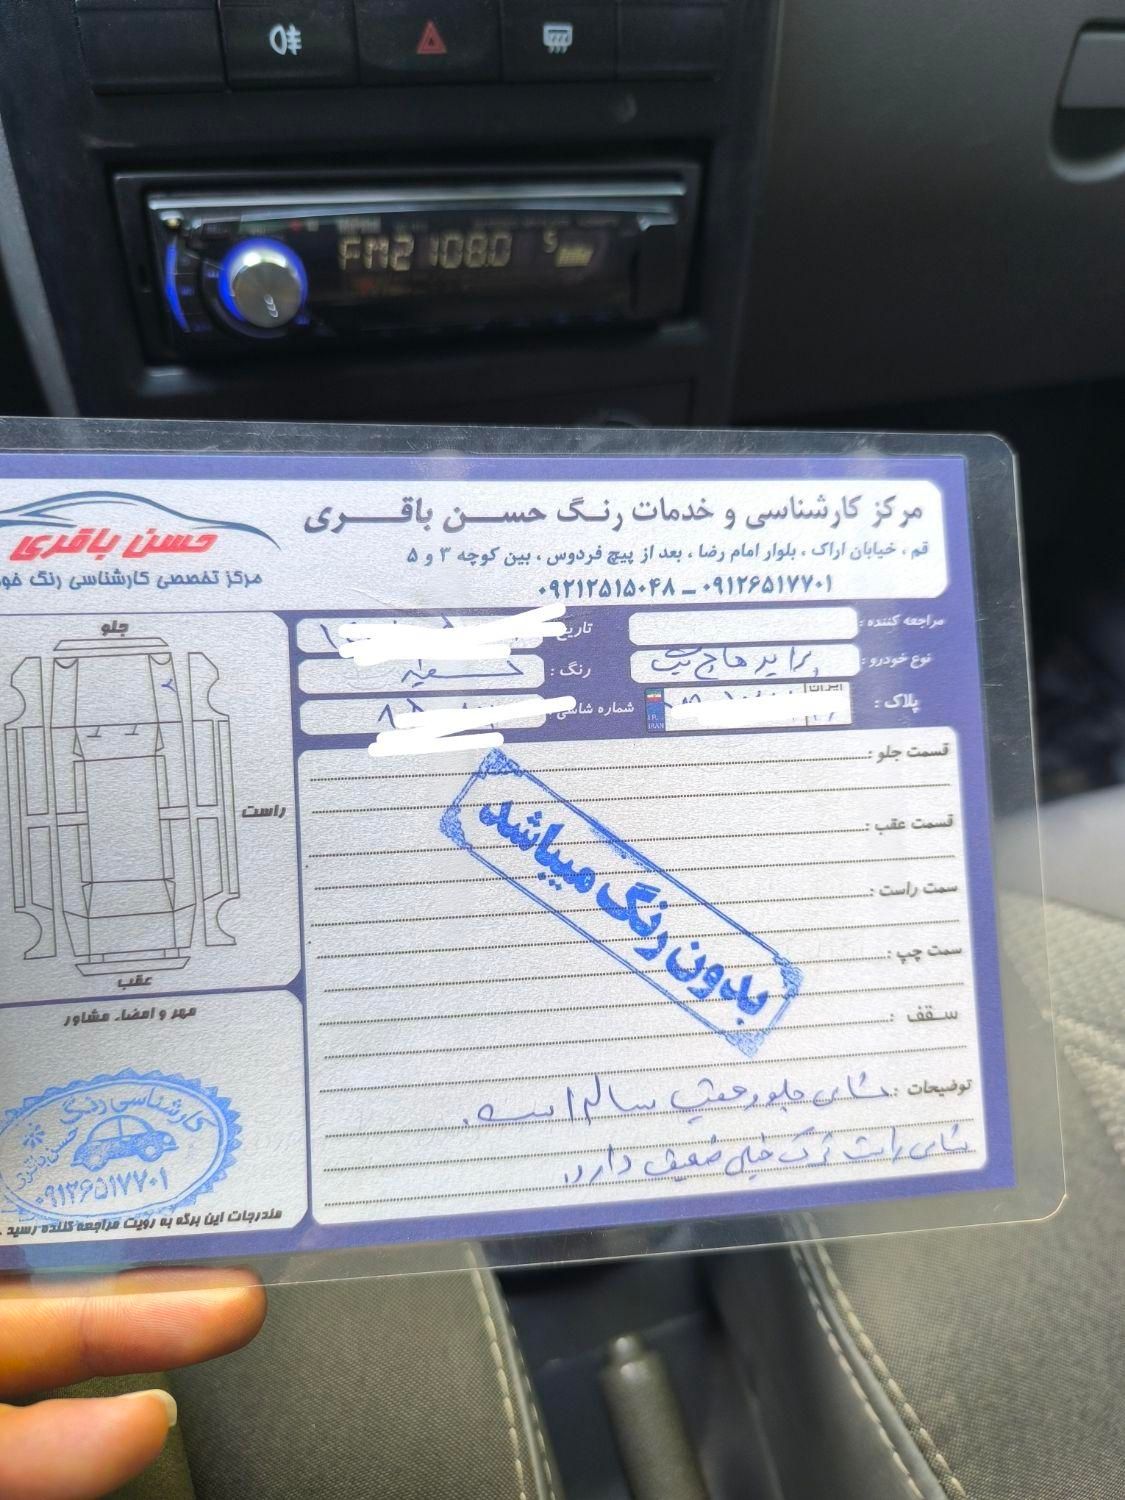 FM2 108.0
مرکز کارشناسی و خدمات رنگ حسن باقری
قم ، خیابان اراک ، بلوار امام رضا ، بعد از پیچ فردوس ، بین کوچه ۳ و ۵
۰۹۱۲۶۵۱۷۷۰۱ – ۰۹۲۱۲۵۱۵۰۴۸
حسن باقری
مرکز تخصصی کارشناسی رنگ خو
مراجعه کننده :
تاریخ
نوع خودرو : پراید هاچ بک
رنگ : سفید
پلاک :
ایران
I.R.
IRAN
شماره شاسی
جلو
راست
عقب
قسمت جلو :
قسمت عقب :
سمت راست :
سمت چپ :
سقف :
بدون رنگ میباشد
توضیحات : شاسی جلو و عقب سالم است.
شاسی راست ترک خیلی ضعیف دارد.
مهر و امضاء مشاور
کارشناسی رنگ
حسن باقری
۰۹۱۲۶۵۱۷۷۰۱
مندرجات این برگه به رویت مراجعه کننده رسید .